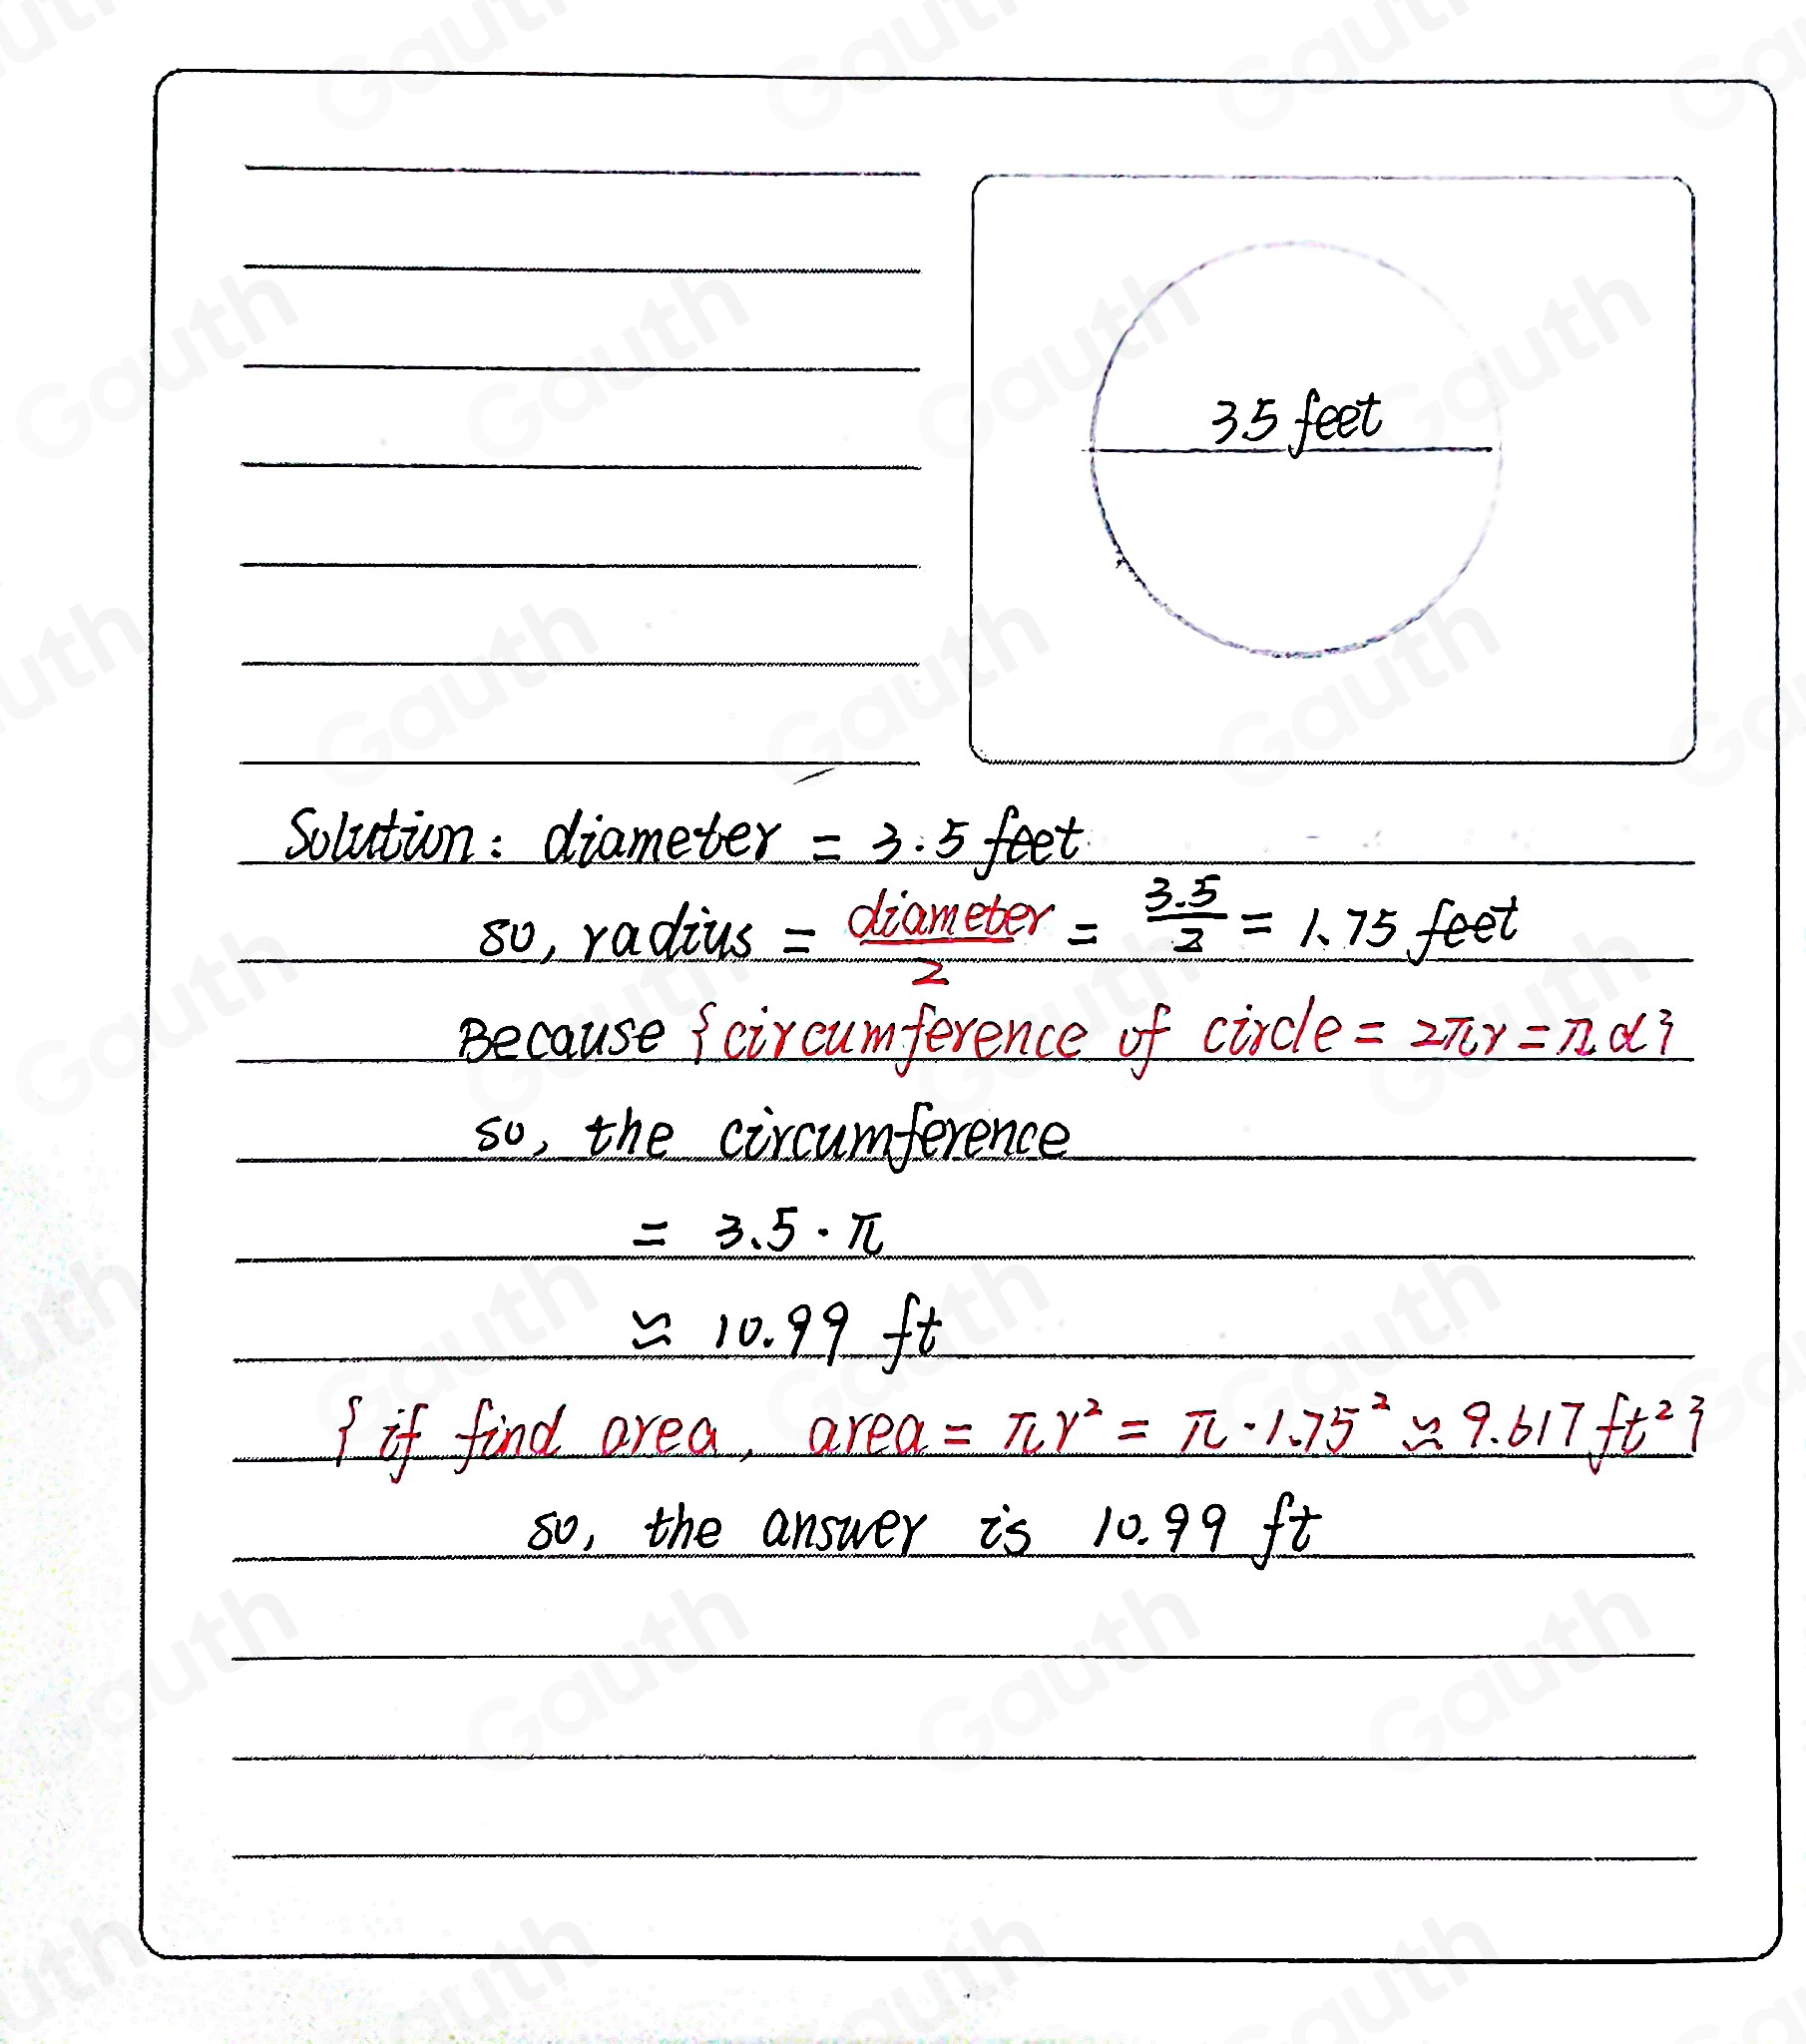 35 feet
Solution: diameter = 3.5 feet
so, radius = diameter/2 = 3.5/2 = 1.75 feet
Because {circumference of circle = 2πr = π d}
so, the circumference
= 3.5 · π
≈ 10.99 ft
{if find area, area = πr² = π · 1.75² ≈ 9.617 ft²}
so, the answer is 10.99 ft
Gauth